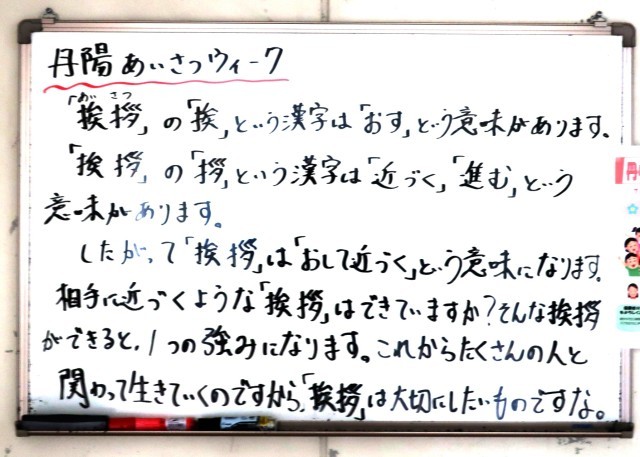 丹陽あいさつウィーク
あい さつ
「挨拶」の「挨」という漢字は「おす」という意味があります。
「挨拶」の「拶」という漢字は「近づく」「進む」という
意味があります。
したがって「挨拶」は「おして近づく」という意味になります。
相手に近づくような「挨拶」はできていますか？そんな挨拶
ができると、1つの強みになります。これからたくさんの人と
関わって生きていくのですから、「挨拶」は大切にしたいものですな。